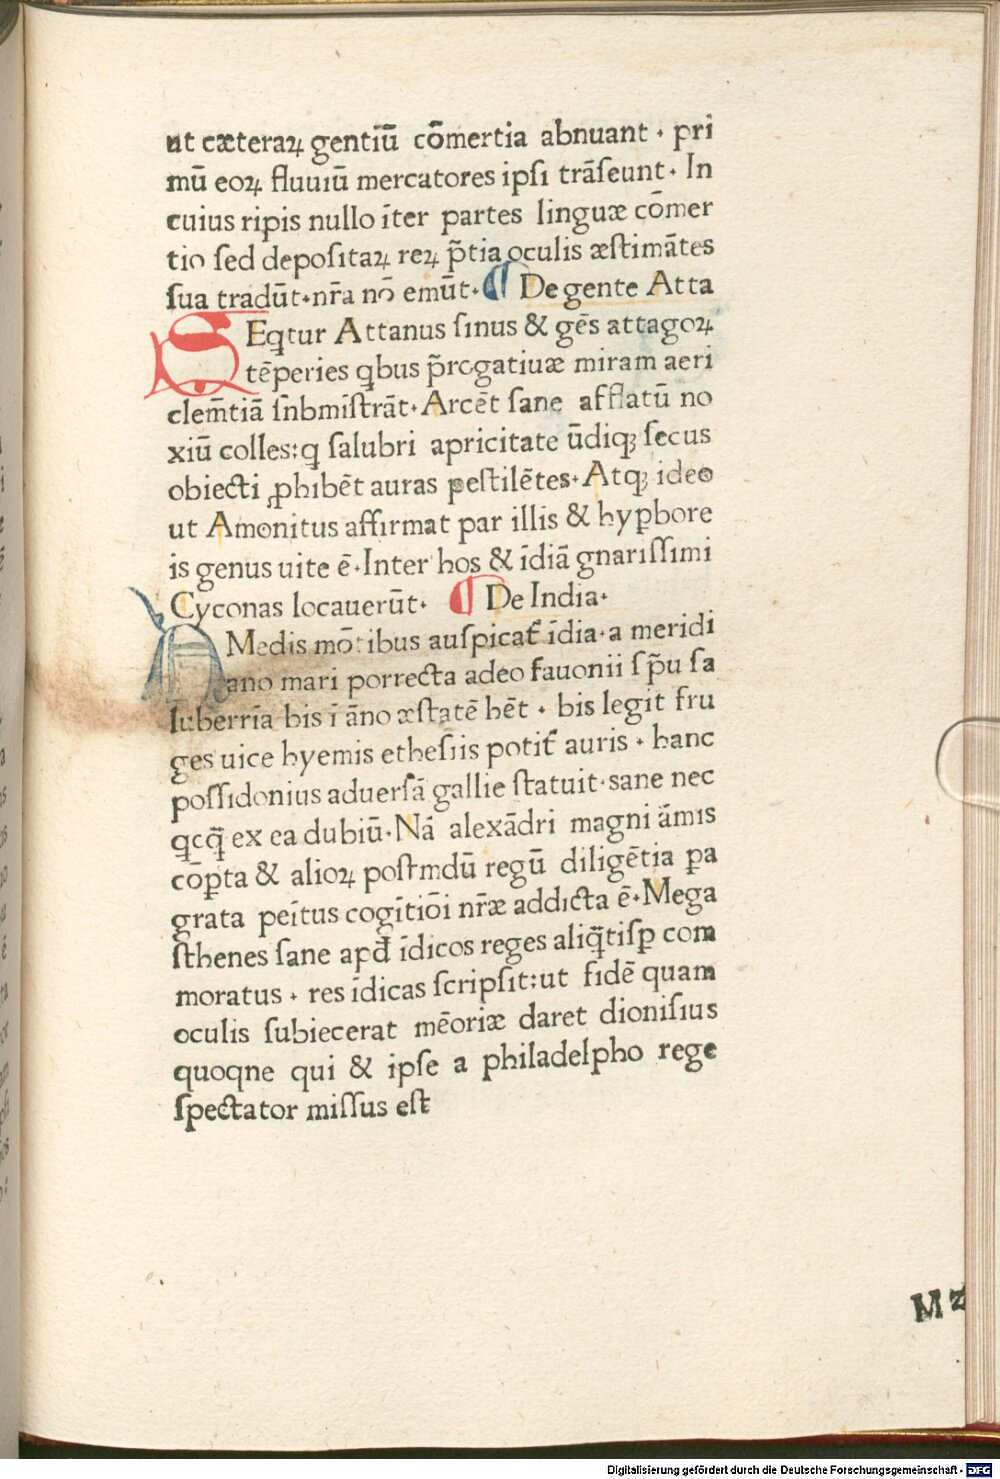 ut cæteraꝝ gentiū cōmertia abnuant · pri
mū eoꝝ fluuiū mercatores ipſi trāſeunt· In
cuius ripis nullo īter partes linguæ cōmer
tio ſed depoſitaꝝ reꝝ p̄tia oculis æſtimātes
ſua tradūt·nr̄a nō emūt· ¶ De gente Atta
SEqtur Attanus ſinus & gēs attagoꝝ
tēperies qbus p̄rogatiuæ miram aeri
clem̄tiā ſnbmīſtrāt· Arcēt ſane afflatū no
xiū colles:q ſalubri apricitate ūdiqꝫ ſecus
obiecti ꝓhibēt auras peſtilētes· Atqꝫ ideo
ut Amonitus affirmat par illis & hypbore
is genus uite ē·Inter hos & īdiā gnariſſimi
Cyconas locauerūt· ¶ De India·
A Medis mōtibus auſpicat᷑ īdia·a meridi
ano mari porrecta adeo fauonii ſp̄u ſa
luberrīa bis ī āno æſtatē hēt · bis legit fru
ges uice hyemis etheſiis potit᷑ auris · hanc
poſſidonius aduerſā gallie ſtatuit·ſane nec
qcq̄ ex ea dubiū·Nā alexādri magni āmis
cōꝑta & alioꝝ poſtmdū regū diligētia ꝑa
grata peītus cogītiōi nr̄æ addicta ē·Mega
ſthenes ſane apđ īdicos reges aliq̄tiſꝑ com
moratus · res īdicas ſcripſit:ut fidē quam
oculis ſubiecerat mēoriæ daret dioniſius
quoqne qui & ipſe a philadelpho rege
ſpectator miſſus eſt
M z
Digitalisierung gefördert durch die Deutsche Forschungsgemeinschaft - DFG